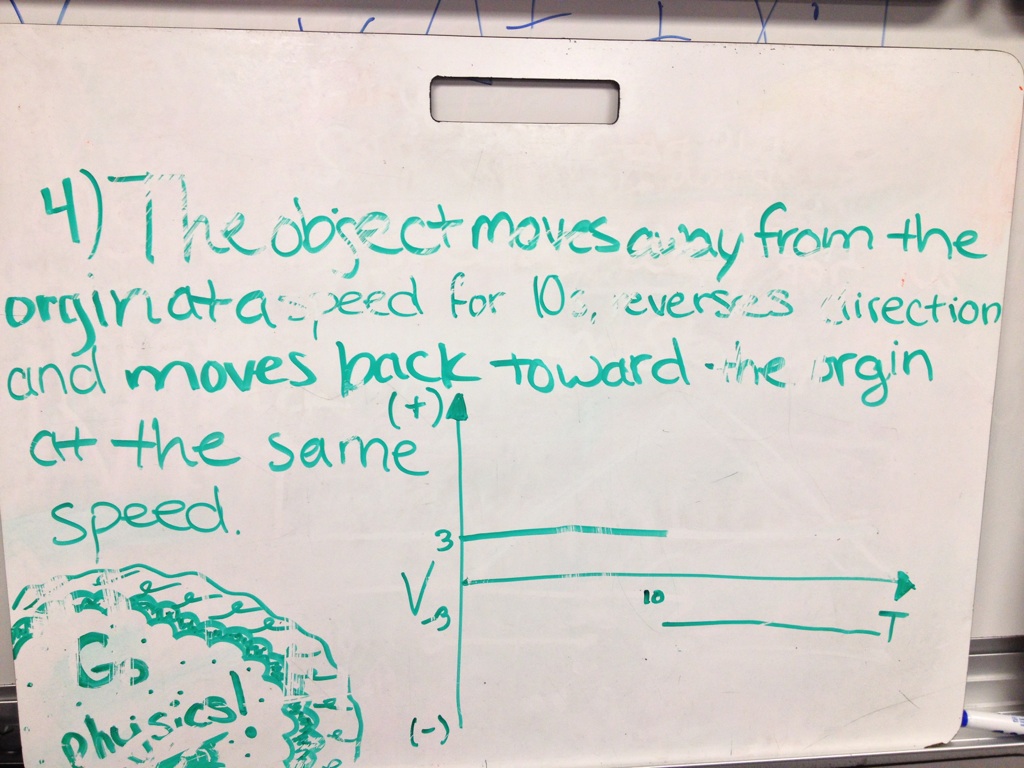 4) The object moves away from the
orgin at a speed for 10s, reverses direction
and moves back toward the orgin
at the same
speed.
(+)
3
V
-3
10
T
(-)
Go
phuisics!